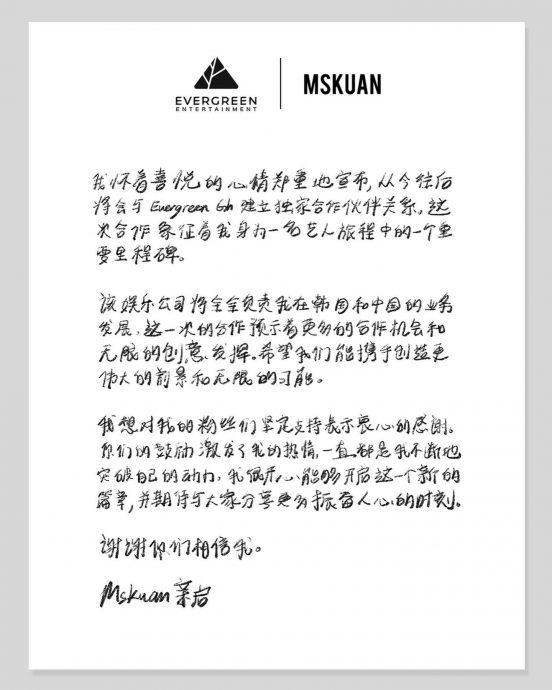 EVERGREEN
ENTERTAINMENT
MSKUAN
我怀着喜悦的心情郑重地宣布,从今往后
将会与 Evergreen Gh 建立独家合作伙伴关系。这
次合作象征着我身为一名艺人旅程中的一个重
要里程碑。
该娱乐公司将全全负责我在韩国和中国的业务
发展,这一次的合作预示着更多的合作机会和
无限的创意发挥。希望我们能携手创造更
伟大的前景和无限的可能。
我想对我的粉丝们坚定支持表示衷心的感谢。
你们的鼓励激发了我的热情,一直都是我不断地
突破自己的动力,我很开心能够开启这一个新的
篇章,并期待与大家分享更多振奋人心的时刻。
谢谢你们相信我。
Mskuan 亲启